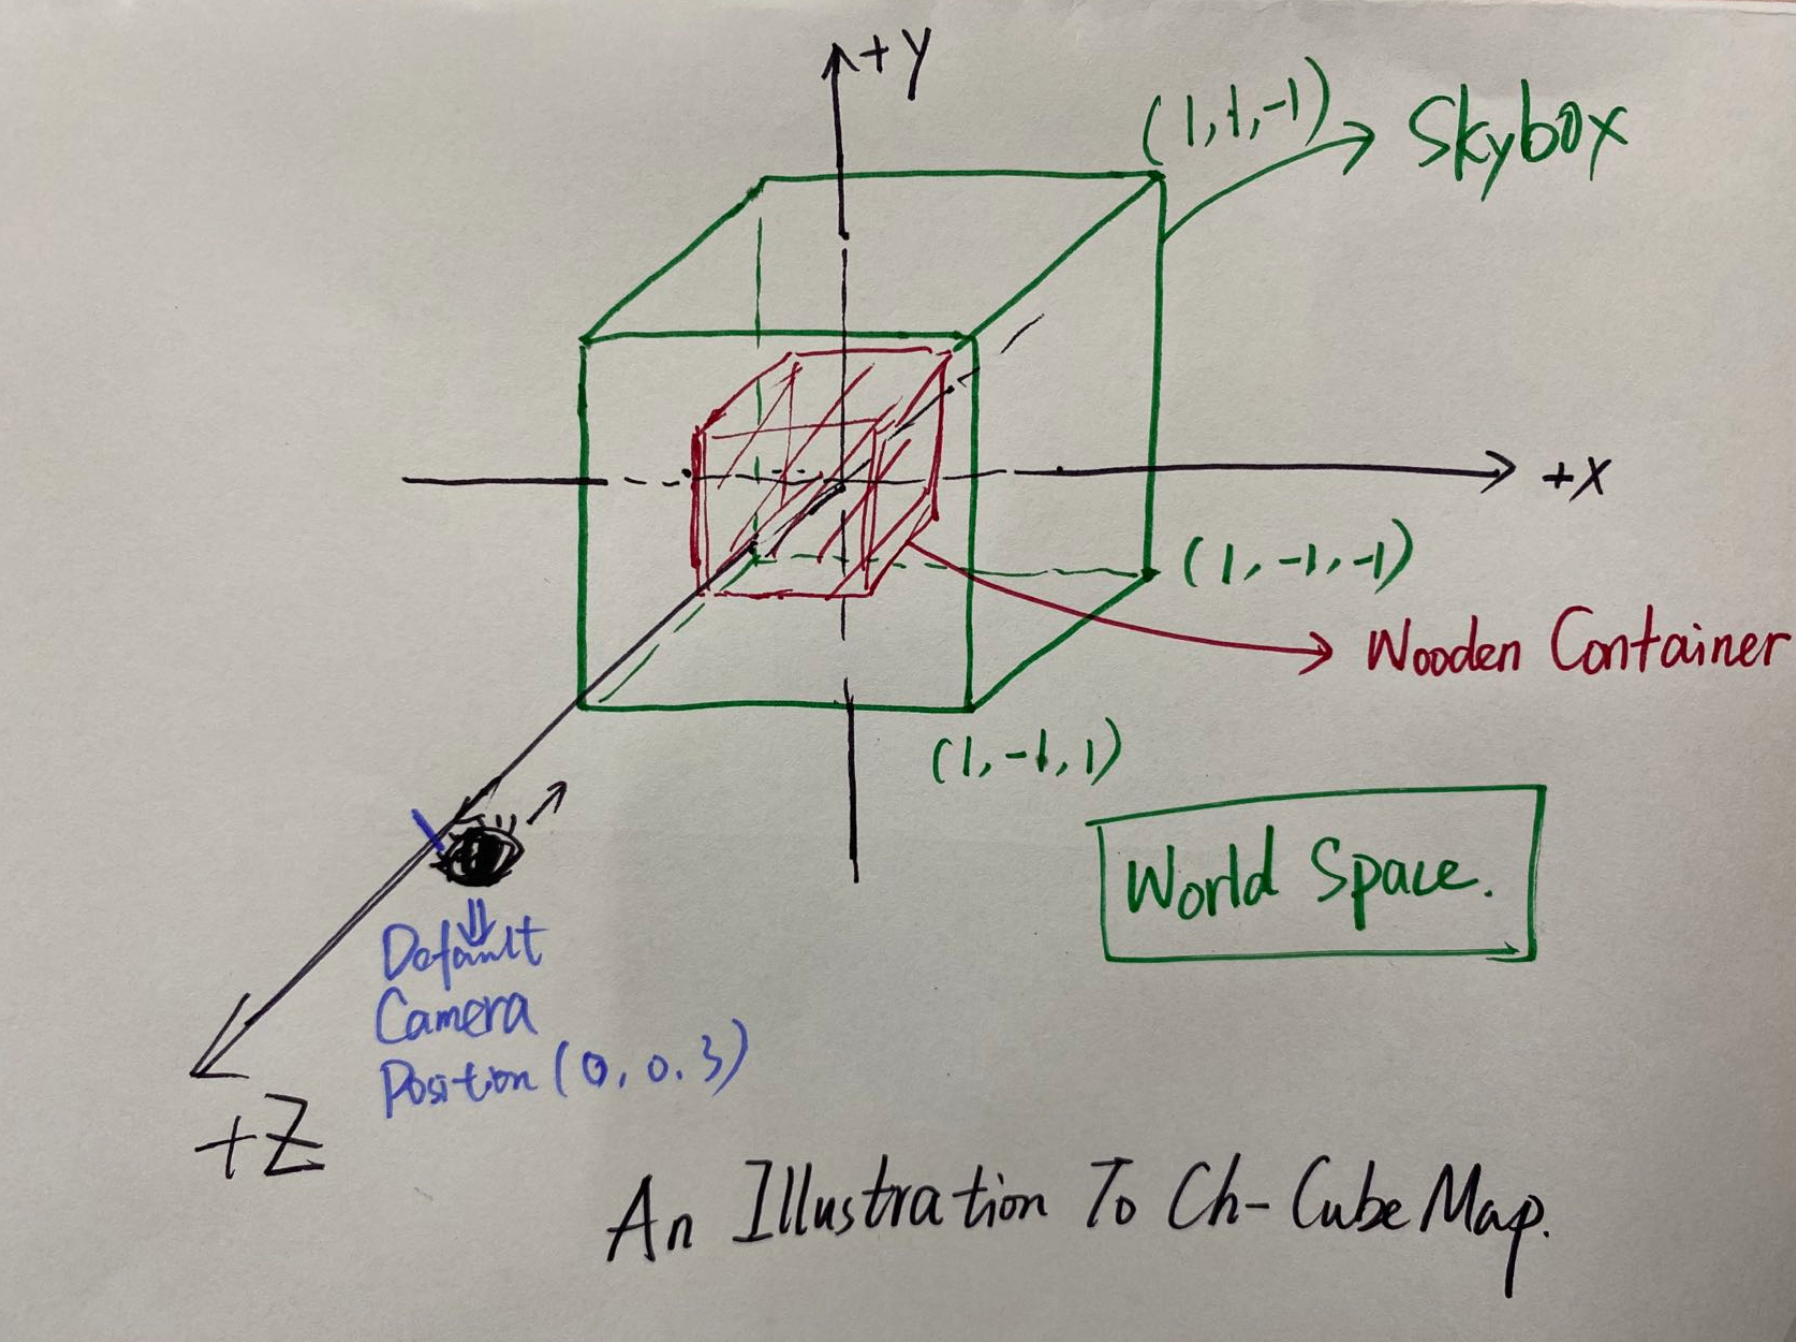 +Y
(1,1,-1)
Skybox
+X
(1,-1,-1)
Wooden Container
(1,-1,1)
World Space.
Default
Camera
Position (0,0.3)
+Z
An Illustration To Ch-CubeMap.